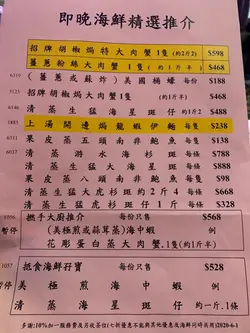 即晚海鮮精選推介
招牌胡椒焗特大肉蟹1隻(約2斤2) $598
薑蔥粉絲大肉蟹1隻(約1斤半) $468
6319 (薑蔥或蘇炸)美國桶蠔 每份 $188
3125 招牌胡椒焗大肉蟹1隻 (約1斤半) $468
清蒸生猛海星斑仔(約1斤2) $488
1885 上湯開邊焗龍蝦伊麵 每隻 $238
6011 果皮蒸五頭南非鮑魚 每隻 $138
6037 清蒸游水海杉斑 每條 $168
清蒸生猛大海星斑 每條 $788
果皮蒸八頭南非鮑魚 每隻 $98
清蒸生猛大虎杉斑約2斤4 每條 $668
清蒸生猛大虎杉斑約2斤 每條 $528
6956 推予大廚推介 每份只售 $568
暫停 (美極煎或蒜茸蒸)海中蝦 例
花彫蛋白蒸大肉蟹1隻(約1斤半)
1057 抵食海鮮孖寶 每份只售 $528
暫停 美極煎海中蝦 例
清蒸海星斑仔 約一斤.1條